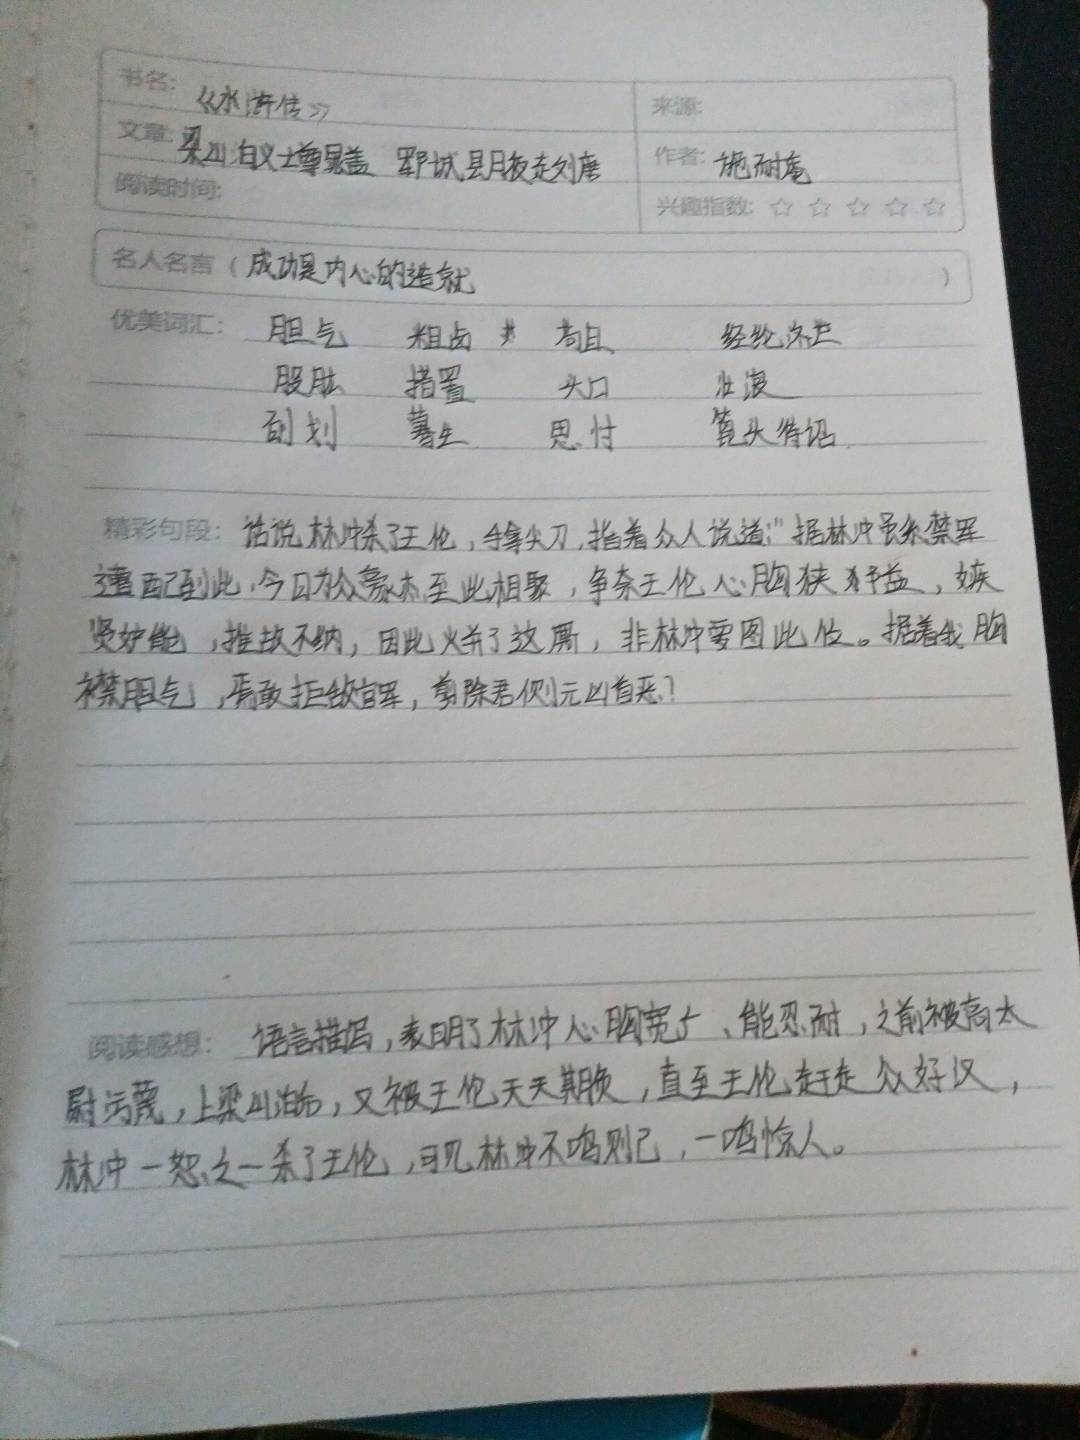 书名：《水浒传》 来源：
文章：梁山泊义士尊晁盖 郓城县月夜走刘唐 作者：施耐庵
阅读时间： 兴趣指数：☆ ☆ ☆ ☆ ☆
名人名言（成功是内心的造就）
优美词汇：胆气 粗卤 高且 经纶济世
股肱 措置 头口 壮浪
刮划 蓦生 思忖 笔头得记
精彩句段：话说林冲杀了王伦，手拿尖刀，指着众人说道："据林冲虽系禁军
遭配到此，今日为众豪杰至此相聚，争奈王伦心胸狭 ，嫉
贤妒能，推故不纳，因此火并了这厮，非林冲要图此位。据着我胸
襟胆气，焉敢拒敌官军，剪除君侧元凶首恶？
阅读感想：语言描写，表明了林冲心胸宽广、能忍耐，之前被高太
尉污蔑，上梁山泊后，又被王伦天天欺负，直至王伦赶走众好汉，
林冲一怒之一杀了王伦，可见林冲不鸣则已，一鸣惊人。